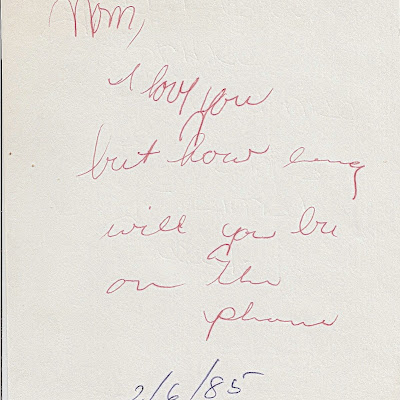 Mom,
I love you
but how long
will you be
on the
phone
2/6/85